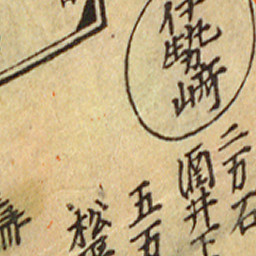 伊勢崎
二万石
酒井下
五万
松平